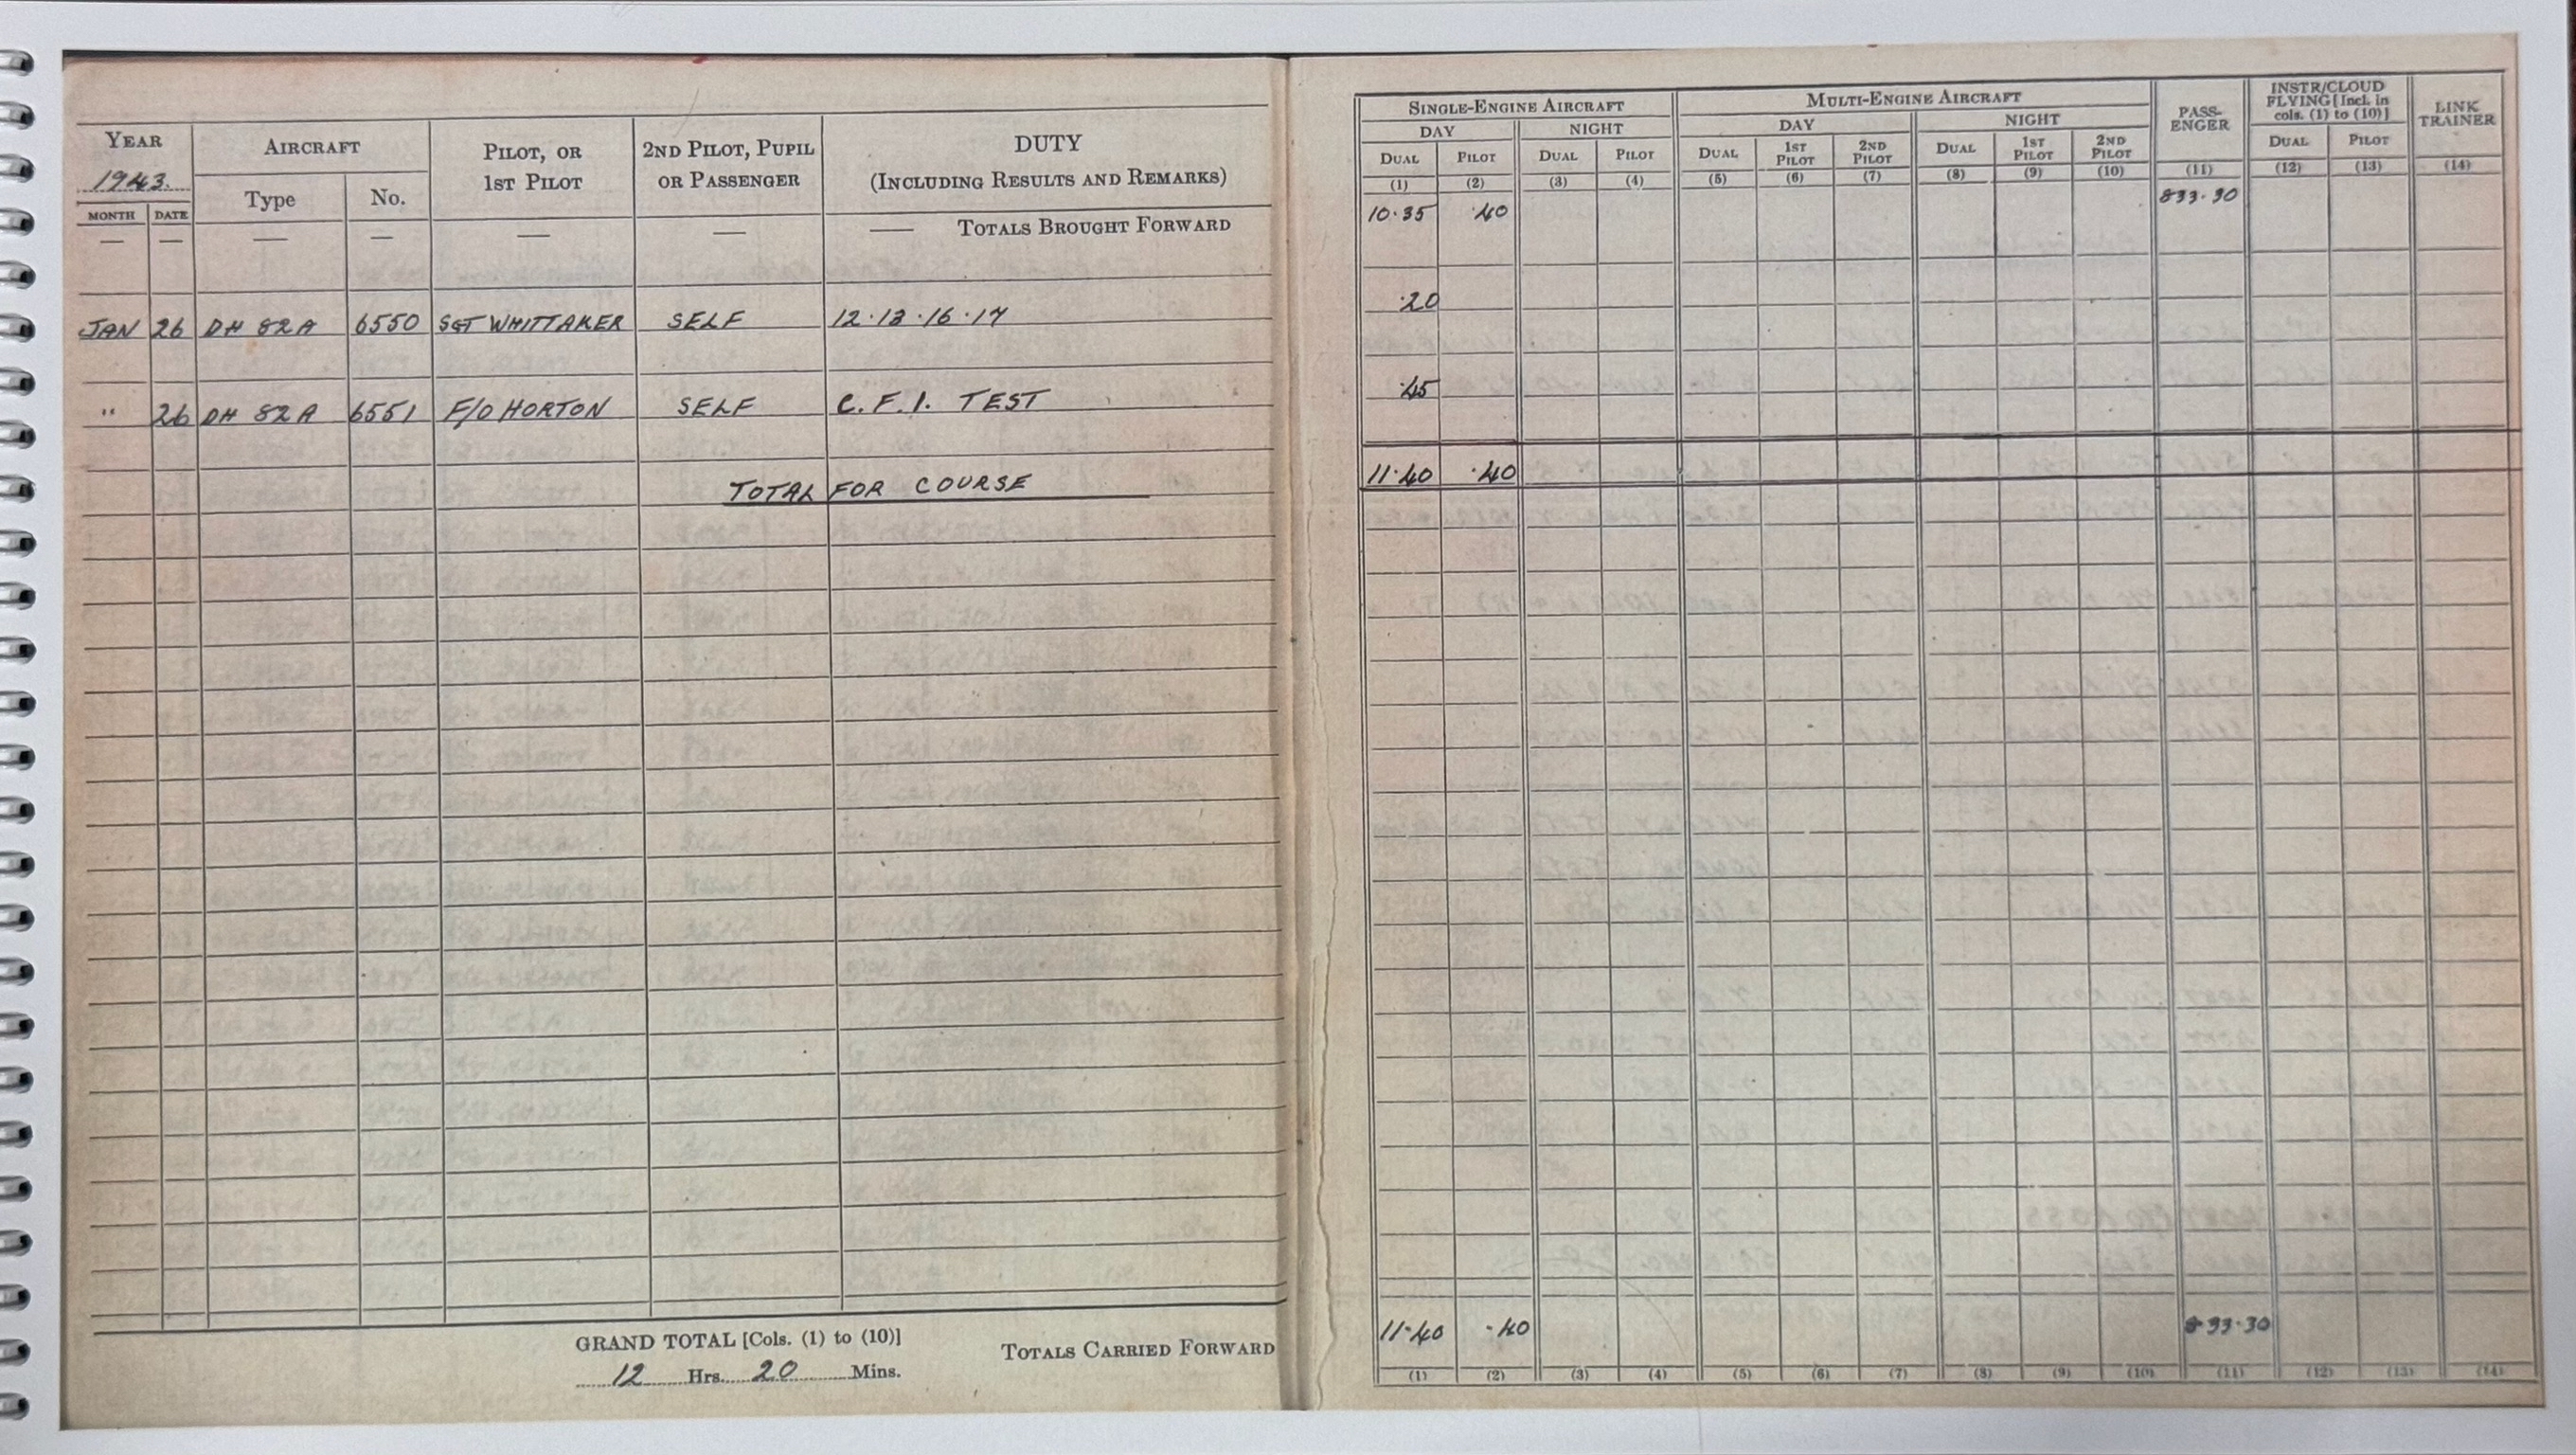 YEAR AIRCRAFT PILOT, OR 1ST PILOT 2ND PILOT, PUPIL OR PASSENGER DUTY (INCLUDING RESULTS AND REMARKS)
1943. Type No.
MONTH DATE
— — — — — — — TOTALS BROUGHT FORWARD
JAN 26 DH 82A 6550 SGT WHITTAKER SELF 12·13·16·17
" 26 DH 82A 6551 F/O HORTON SELF C.F.I. TEST
TOTAL FOR COURSE
GRAND TOTAL [Cols. (1) to (10)]
12 Hrs. 20 Mins.
TOTALS CARRIED FORWARD
SINGLE-ENGINE AIRCRAFT MULTI-ENGINE AIRCRAFT PASS-ENGER INSTR/CLOUD FLYING [Incl. in cols. (1) to (10)] LINK TRAINER
DAY NIGHT DAY NIGHT
DUAL PILOT DUAL PILOT DUAL 1ST PILOT 2ND PILOT DUAL 1ST PILOT 2ND PILOT DUAL PILOT
(1) (2) (3) (4) (5) (6) (7) (8) (9) (10) (11) (12) (13) (14)
10·35 ·40 833·30
·20
·45
11·40 ·40
11·40 ·40 833·30
(1) (2) (3) (4) (5) (6) (7) (8) (9) (10) (11) (12) (13) (14)